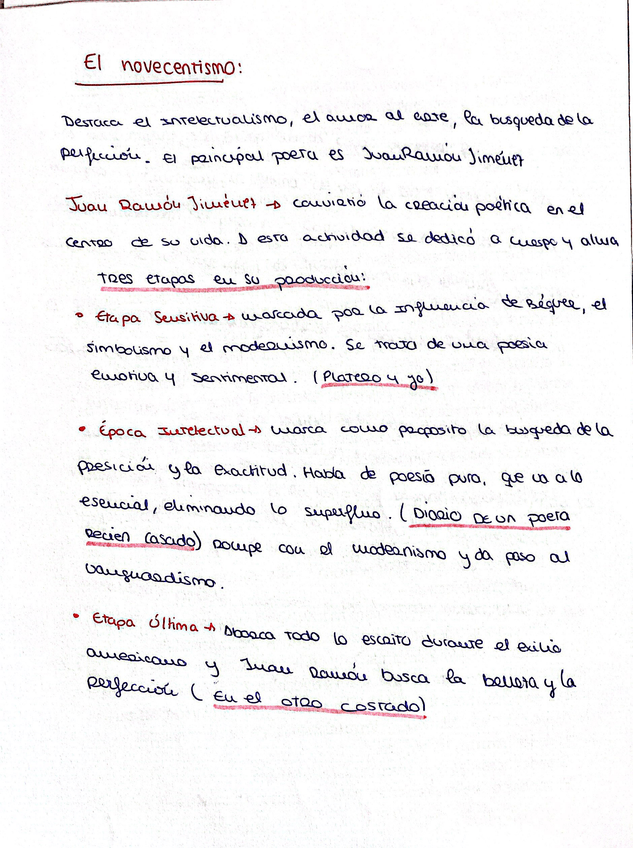 El novecentismo:
Destaca el intelectualismo, el amor al arte, la busqueda de la
perfección. El principal poeta es Juan Ramón Jiménez
Juan Ramón Jiménez → convirtió la creación poética en el
centro de su vida. A esta actividad se dedicó a cuerpo y alma
Tres etapas en su producción:
• Etapa Sensitiva → marcada por la influencia de Béquer, el
simbolismo y el modernismo. Se trata de una poesia
emotiva y sentimental. (Platero y yo)
• Época Intelectual → marca como proposito la busqueda de la
presición y la exactitud. Habla de poesia pura, que va a lo
esencial, eliminando lo superfluo. (Diario de un poeta
recien casado) rompe con el modernismo y da paso al
vanguardismo.
• Etapa Última → Abarca todo lo escrito durante el exilio
americano y Juan Ramón busca la belleza y la
perfección (En el otro costado)